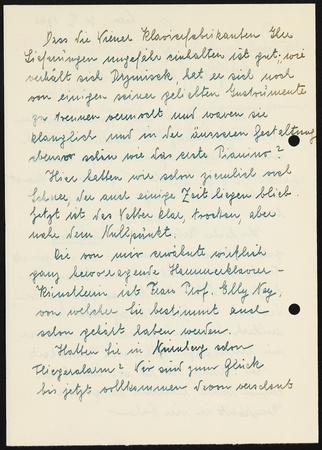 Dass die Wiener Klavierfabrikanten Ihre
Lieferungen ungefähr einhalten ist gut; wie
verhält sich Dymisck, hat er sich noch
von einigen seiner geliebten Instrumente
zu trennen vermocht und waren sie
klanglich und in der äusseren Gestaltung
ebenso schön wie das erste Pianino?
Hier hatten wir schon ziemlich viel
Schnee, der auch einige Zeit liegen blieb.
Jetzt ist das Wetter klar, trocken, aber
nahe dem Nullpunkt.
Die von mir erwähnte wirklich
ganz hervorragende Hammerklavier-
Künstlerin ist Frau Prof. Elly Ney,
von welcher Sie bestimmt auch
schon gehört haben werden.
Hatten Sie in Nürnberg schon
Fliegeralarm? Wir sind zum Glück
bis jetzt vollkommen davon verschont